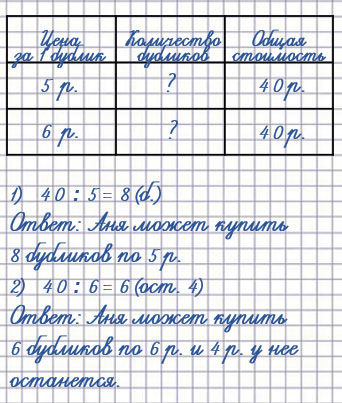 Цена за 1 бублик Количество бубликов Общая стоимость
5 р. ? 40 р.
6 р. ? 40 р.
1) 40 : 5 = 8 (б.)
Ответ: Аня может купить
8 бубликов по 5 р.
2) 40 : 6 = 6 (ост. 4)
Ответ: Аня может купить
6 бубликов по 6 р. и 4 р. у нее
останется.